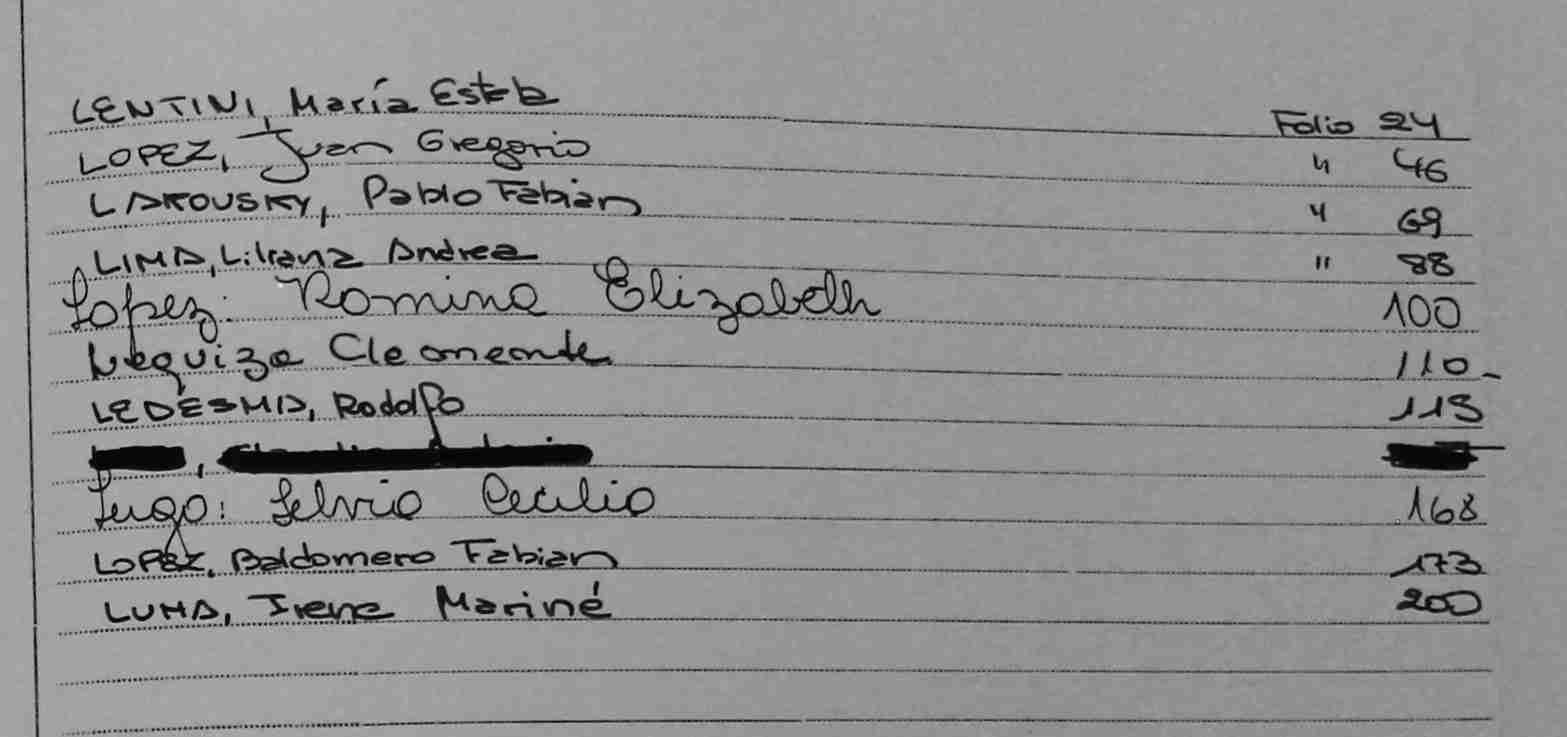 LENTINI, María Estela Folio 24
LOPEZ, Juan Gregorio " 46
LAKOUSKY, Pablo Fabian " 69
LIMA, Liliana Andrea " 88
Lopez: Romina Elizabeth 100
Leguiza 110-
LEDESMA, Rodolfo 115
Lugo: Silvio Cecilio 168
LOPEZ, Baldomero Fabian 173
LUNA, Irene Mariné 200